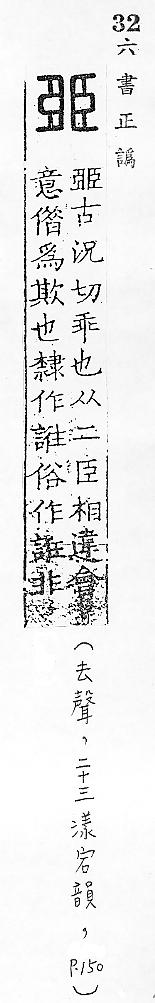 32 六書正譌
臦
臦古況切乖也从二臣相違會
意僭爲欺也隸作誰俗作誑非
（去聲，二十三漾宕韻，P.150）